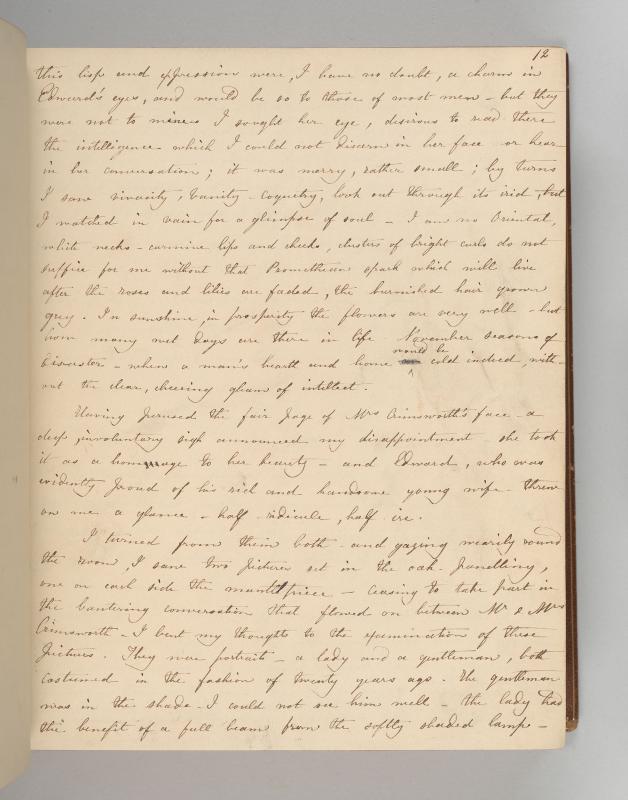 12
this lisp and expression were, I have no doubt, a charm in
Edward's eyes, and would be so to those of most men - but they
were not to mine - I sought her eye, desirous to read there
the intelligence which I could not discern in her face or hear
in her conversation; it was merry, rather small; by turns
I saw vivacity, vanity - coquetry, look out through its irid, but
I watched in vain for a glimpse of soul - I am no Oriental,
white necks - carmine lips and cheeks, clusters of bright curls do not
suffice for me without that Promethean spark which will live
after the roses and lilies are faded, the burnished hair grown
grey. In sunshine, in prosperity the flowers are very well - but
how many wet days are there in life - November seasons of
disaster - when a man's hearth and home would be cold indeed, with-
out the clear, cheering gleam of intellect.
Having perused the fair page of Mrs Crimsworth's face - a
deep, involuntary sigh announced my disappointment - she took
it as a homage to her beauty - and Edward, who was
evidently proud of his rich and handsome young wife - threw
on me a glance - half ridicule, half ire.
I turned from them both - and gazing wearily round
the room, I saw two pictures set in the oak-panelling,
one on each side the mantel piece - ceasing to take part in
the bantering conversation that flowed on between Mr & Mrs
Crimsworth - I bent my thoughts to the examination of these
pictures. They were portraits - a lady and a gentleman, both
costumed in the fashion of twenty years ago. The gentleman
was in the shade - I could not see him well - the lady had
the benefit of a full beam from the softly shaded lamp -